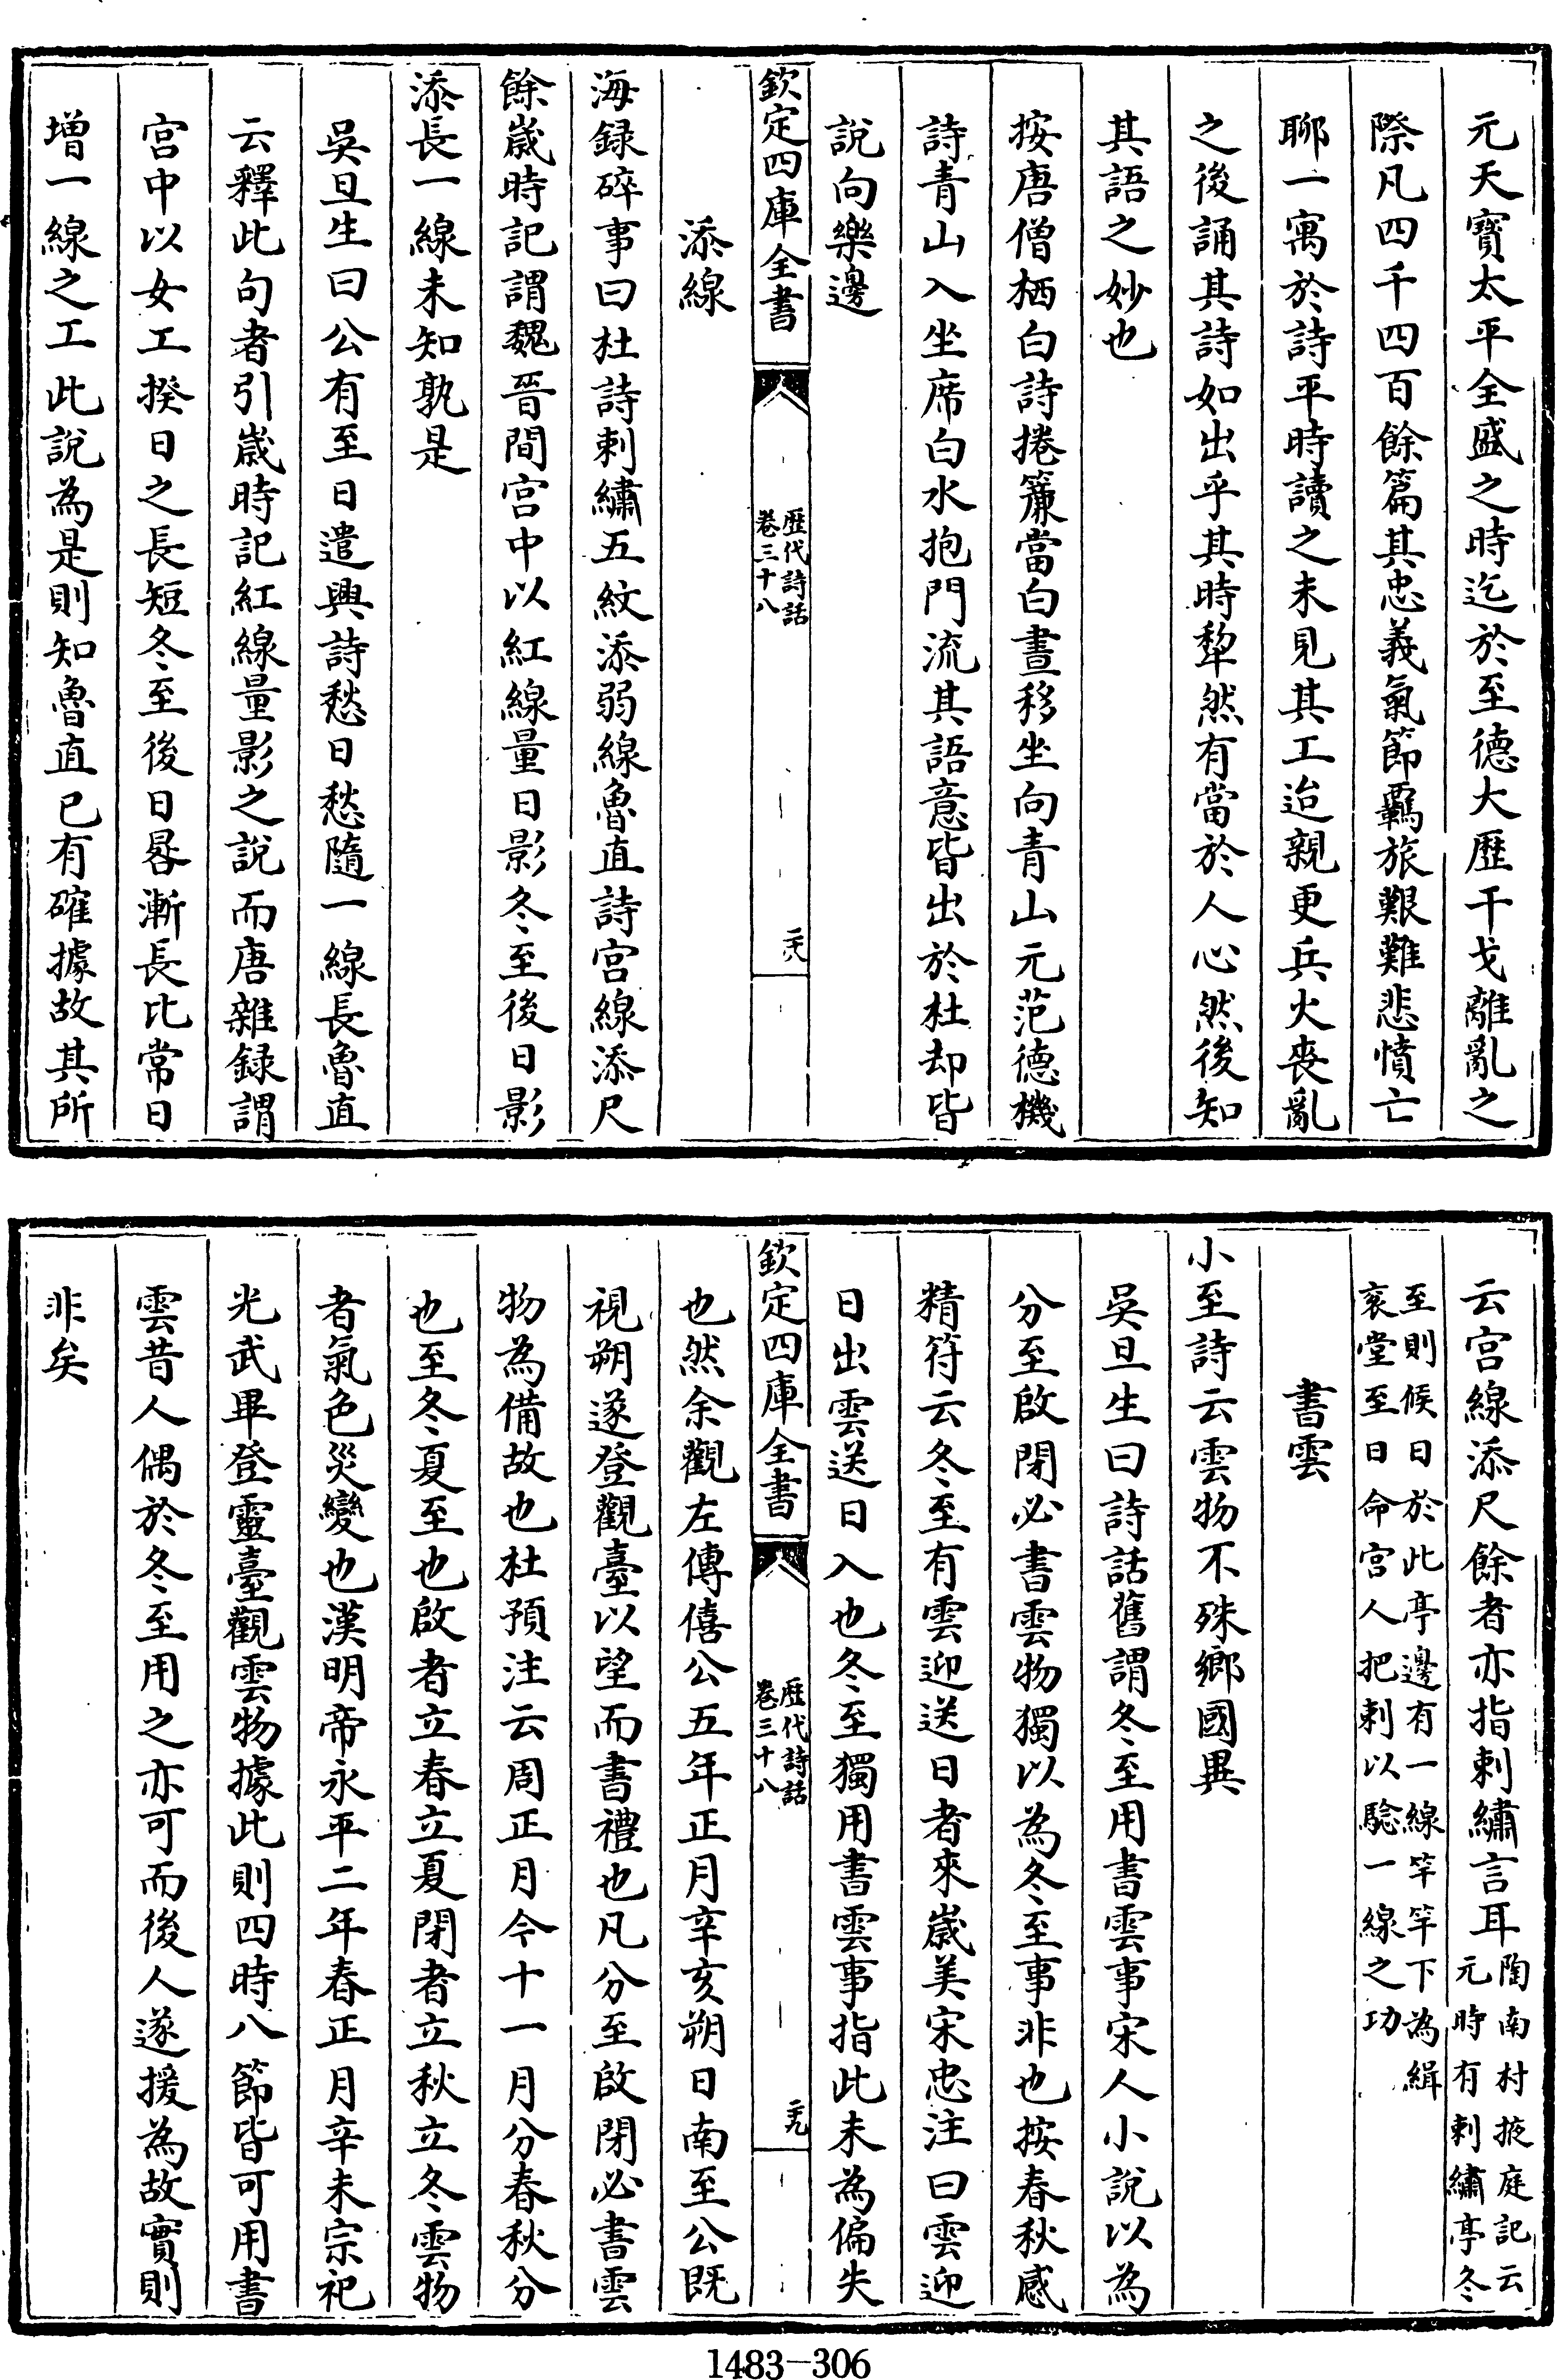 元天寳太平全盛之時迄於至德大歴干戈離亂之
際凡四千四百餘篇其忠義氣節羈旅艱難悲憤亡
聊一寓於詩平時讀之未見其工迨親更兵火喪亂
之後誦其詩如出乎其時犂然有當於人心然後知
其語之妙也
按唐僧栖白詩捲簾當白晝移坐向青山元范德機
詩青山入坐席白水抱門流其語意皆出於杜却皆
說向樂邊
欽定四庫全書
歴代詩話
卷三十八
二六
添線
海録碎事曰杜詩刺繡五紋添弱線魯直詩宫線添尺
餘嵗時記謂魏晉間宫中以紅線量日影冬至後日影
添長一線未知孰是
吳旦生曰公有至日遣興詩愁日愁隨一線長魯直
云釋此句者引嵗時記紅線量影之說而唐雜録謂
宫中以女工揆日之長短冬至後日晷漸長比常日
增一線之工此說為是則知魯直已有確據故其所
云宫線添尺餘者亦指刺繡言耳陶南村掖庭記云
元時有刺繡亭冬
至則候日於此亭邊有一線竿竿下為緝
衮堂至日命宫人把刺以驗一線之功
書雲
小至詩云雲物不殊鄉國異
吳旦生曰詩話舊謂冬至用書雲事宋人小說以為
分至啟閉必書雲物獨以為冬至事非也按春秋感
精符云冬至有雲迎送日者來嵗美宋忠注曰雲迎
日出雲送日入也冬至獨用書雲事指此未為偏失
欽定四庫全書
歴代詩話
卷三十八
二九
也然余觀左傳僖公五年正月辛亥朔日南至公既
視朔遂登觀臺以望而書禮也凡分至啟閉必書雲
物為備故也杜預注云周正月今十一月分春秋分
也至冬夏至也啟者立春立夏閉者立秋立冬雲物
者氣色災變也漢明帝永平二年春正月辛未宗祀
光武畢登靈臺觀雲物據此則四時八節皆可用書
雲昔人偶於冬至用之亦可而後人遂援為故實則
非矣
1483-306